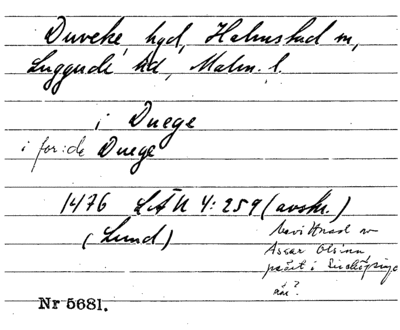 Duveke, hgd, Halmstad sn,
Luggude hd, Malm. l.
i Duege
i for:de Duege
1476 LÄU 4:259 (avskr.)
(Lund)
bevittnad av
Assar Olsinn,
präst i
når?
Nr 5681.